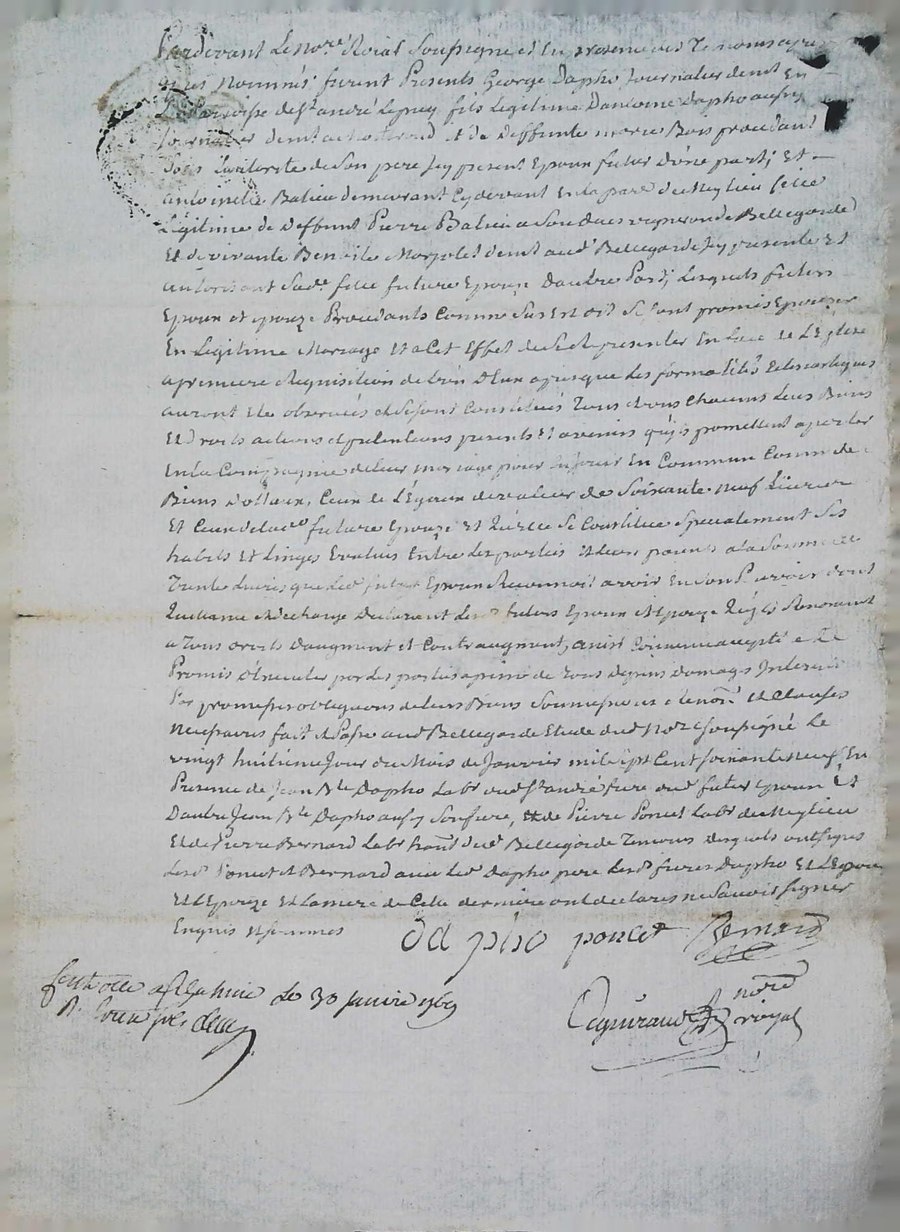 Pardevant Le Nore Roial Soussigné et En presence des Temoins apres
Nommés furent Presents George Dapho Journalier demt En
La Paroisse de St andré Le puy fils Legitime Dantoine Dapho aussy
Journalier demt et de deffunte marie Bois procedant
Sous Lautorité de Son pere Icy present Epoux futur d'une part; Et
antoinette Balieu demeurant Cydevant En la pare de Meylieu fille
Légitime de deffunt Pierre Balieu vigneron de Bellegarde
Et de vivante Benoite demt aud Bellegarde Icy presente Et
autorisant Sade fille future Epouze Dautre Part; Lesquels futurs
Epoux et Epouze Procedants Comme Sus Est dit Se Sont promis Epouzer
En Legitime Mariage Et a Cet Effet de Se Representer En face de L'Eglise
a premiere Requisition de Lun D'Eux apres que Les formalités
auront Eté observées et Se sont Constitués Tous Chacuns Leurs Biens
Et Droits actions et pretentions presents Et avenirs qu'ils promettent aporter
En La Compagnie de Leur mariage pour En Jouir En Commun Comme de
Biens Dottaux, Ceux de L'Epoux de valeur de Soixante Neuf Livres
Et Ceux de Lade future Epouze Et Se Constitue Specialement Ses
habits Et Linges Evalués Entre Les parties Et Leurs parents a la Somme de
Trente Livres que Led futur Epoux Reconnoit avoir En Son Pouvoir dont
Quittance Décharge Declarant Lesd futurs Epoux et Epouze Renoncant
a Tous droits Daugment et Contraugment, ainsi Convenu accepté
Promis Executer par Les parties a peine de Tous depens domages Interets
Par promesses obligations de Leurs Biens Soumissions Renon Et Clauses
fait et Passé aud Bellegarde Etude dud Nore Soussigné Le
vingt huitieme Jour du Mois de Janvier mil Sept Cent Soixante Neuf En
Presence de Jean Bte Dapho Labr aud St andré frere dud futur Epoux Et
Dautre Jean Bte Dapho aussy Son frere, Et de Pierre Poncet Labr de Meylieu
Et de Pierre Bernard Labr hant dud Bellegarde Temoins Lesquels ont Signé
Lesd Poncet et Bernard avec Led Dapho pere Lesd freres Dapho Et L'Epoux
Et L'Epouze Et La mere de Cette derniere ont declarés ne Savoir Signer
Enquis Et Sommés
Dapho poncet Bernard
nore
royal
Le 30 janvier 1769